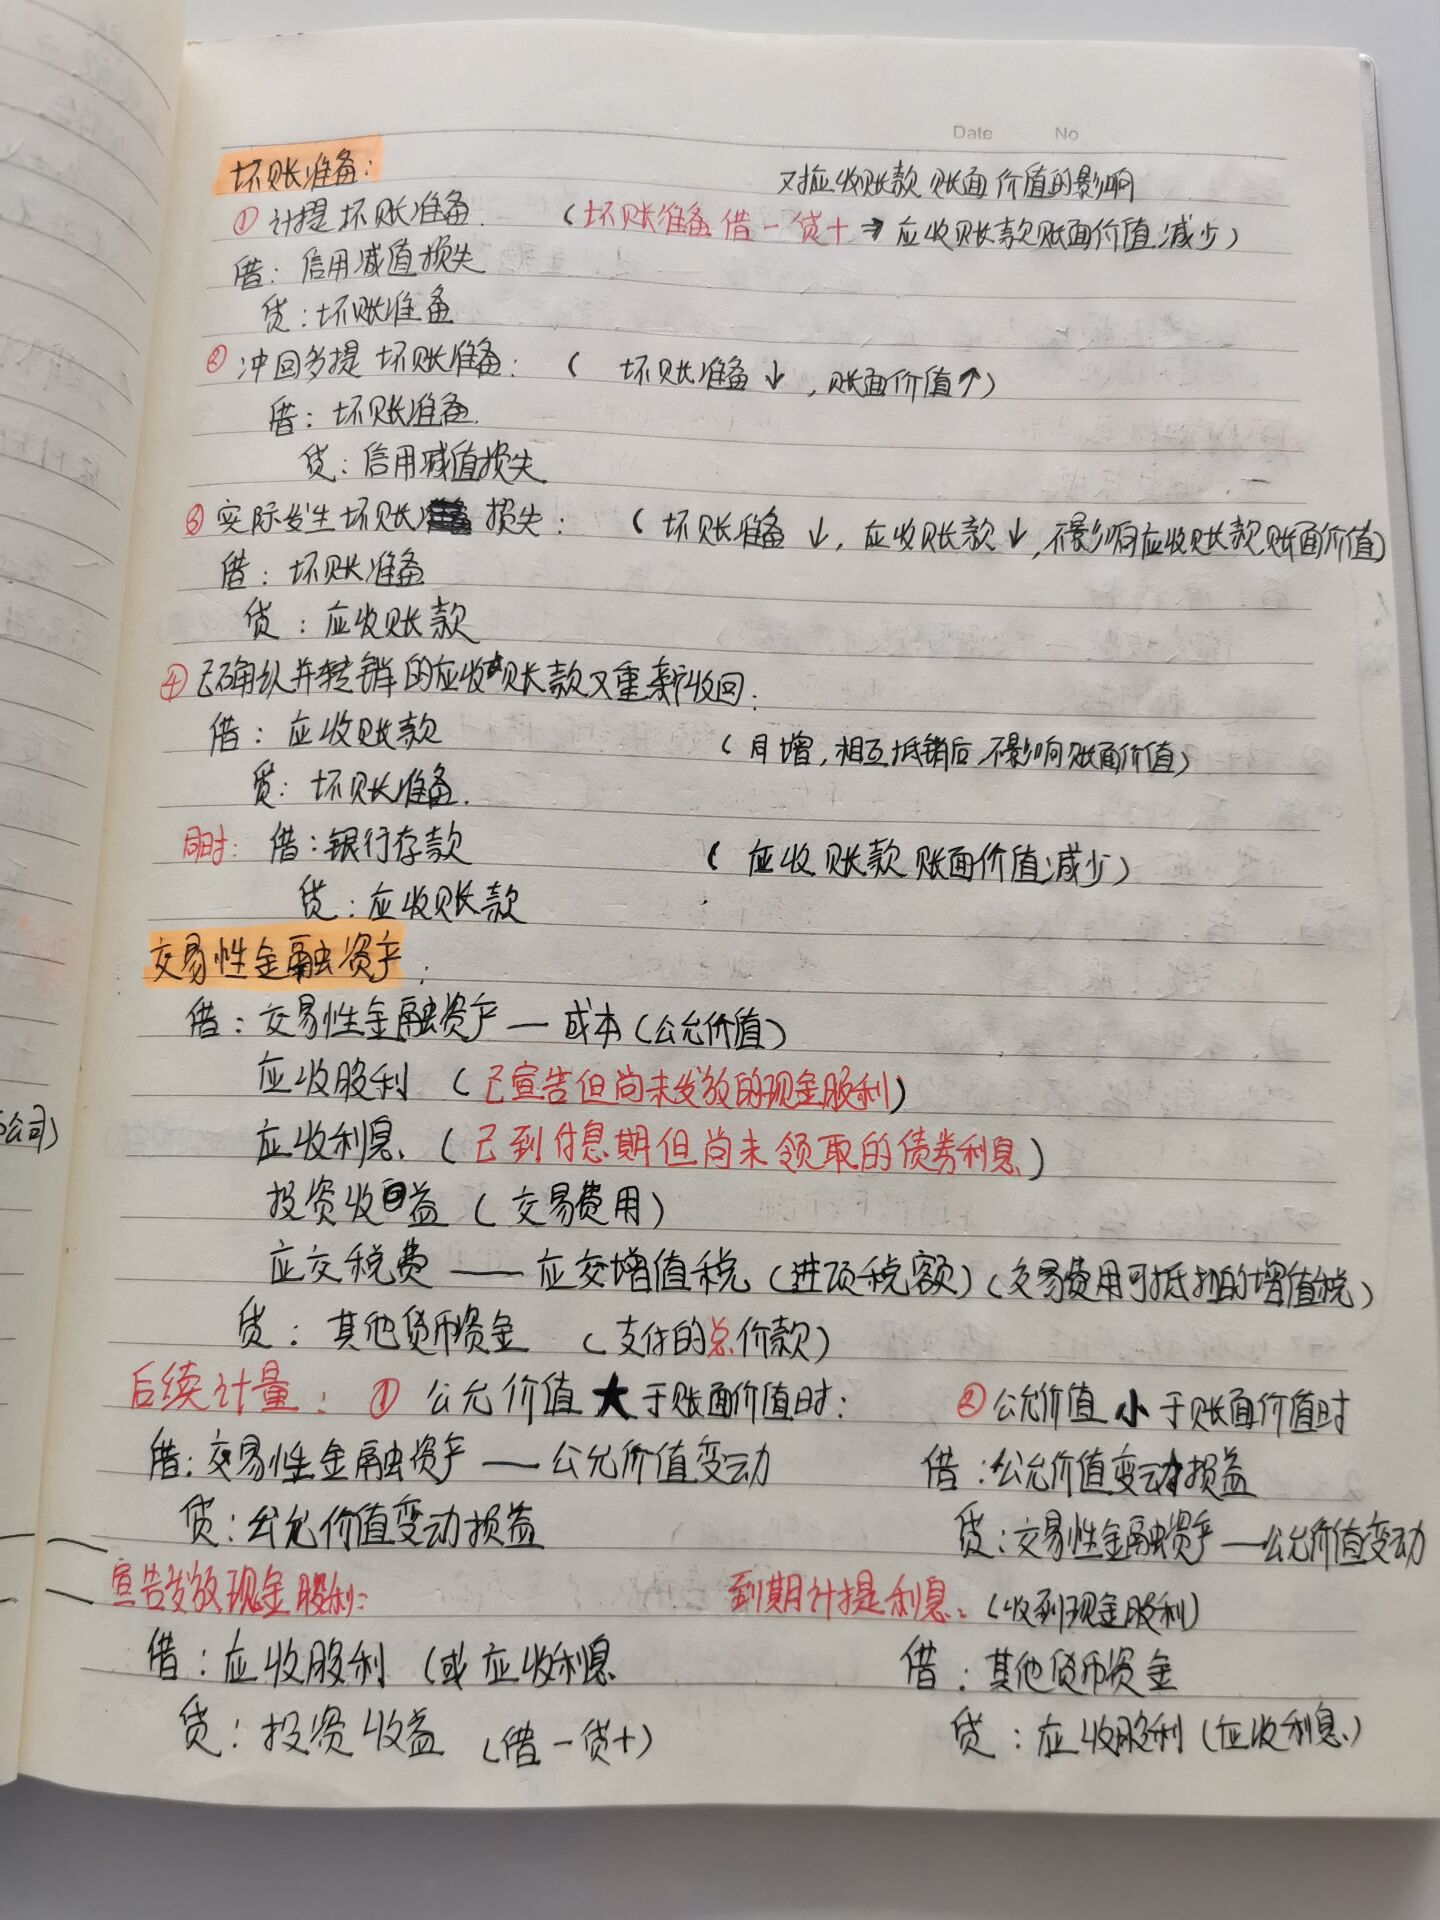 Date No
坏账准备: 对应收账款账面价值的影响
①计提坏账准备. (坏账准备借－贷＋⇒应收账款账面价值减少)
借: 信用减值损失
贷: 坏账准备
②冲回多提坏账准备: (坏账准备↓, 账面价值↑)
借: 坏账准备.
贷: 信用减值损失
③实际发生坏账损失: (坏账准备↓, 应收账款↓, 不影响应收账款账面价值)
借: 坏账准备
贷: 应收账款
④已确认并转销的应收账款又重新收回.
借: 应收账款 (同增, 相互抵销后, 不影响账面价值)
贷: 坏账准备.
同时: 借: 银行存款 (应收账款账面价值减少)
贷: 应收账款
交易性金融资产.
借: 交易性金融资产—成本(公允价值)
应收股利 (已宣告但尚未发放的现金股利)
应收利息 (已到付息期但尚未领取的债券利息)
投资收益 (交易费用)
应交税费——应交增值税(进项税额)(交易费用可抵扣的增值税)
贷: 其他货币资金 (支付的总价款)
后续计量: ①公允价值大于账面价值时: ②公允价值小于账面价值时
借: 交易性金融资产—公允价值变动 借: 公允价值变动损益
贷: 公允价值变动损益 贷: 交易性金融资产—公允价值变动
宣告发放现金股利: 到期计提利息: (收到现金股利)
借: 应收股利 (或应收利息 借: 其他货币资金
贷: 投资收益 (借－贷＋) 贷: 应收股利(应收利息)
公司)